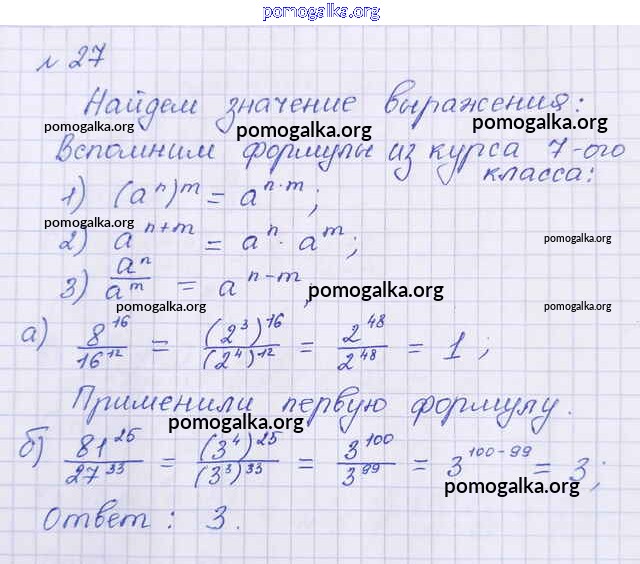 pomogalka.org
№ 27
Найдем значение выражения:
pomogalka.org pomogalka.org pomogalka.org
Вспомним формулы из курса 7-ого
класса:
1) (a^n)^m = a^{n·m};
pomogalka.org
2) a^{n+m} = a^n · a^m;
pomogalka.org
3) a^n/a^m = a^{n-m};
pomogalka.org pomogalka.org pomogalka.org
а) 8^16/16^12 = (2^3)^16/(2^4)^12 = 2^48/2^48 = 1;
Применили первую формулу.
pomogalka.org
б) 81^25/27^33 = (3^4)^25/(3^3)^33 = 3^100/3^99 = 3^{100-99} = 3;
pomogalka.org
Ответ: 3.